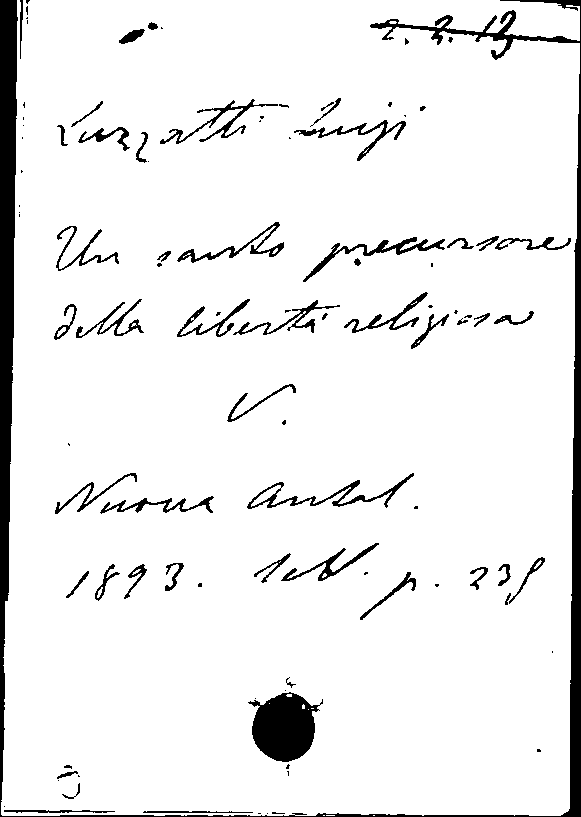 2. 2. 13
Luzzatti Luigi
Un santo precursore
della libertà religiosa
V.
Nuova Antol.
1893. Sett. p. 239